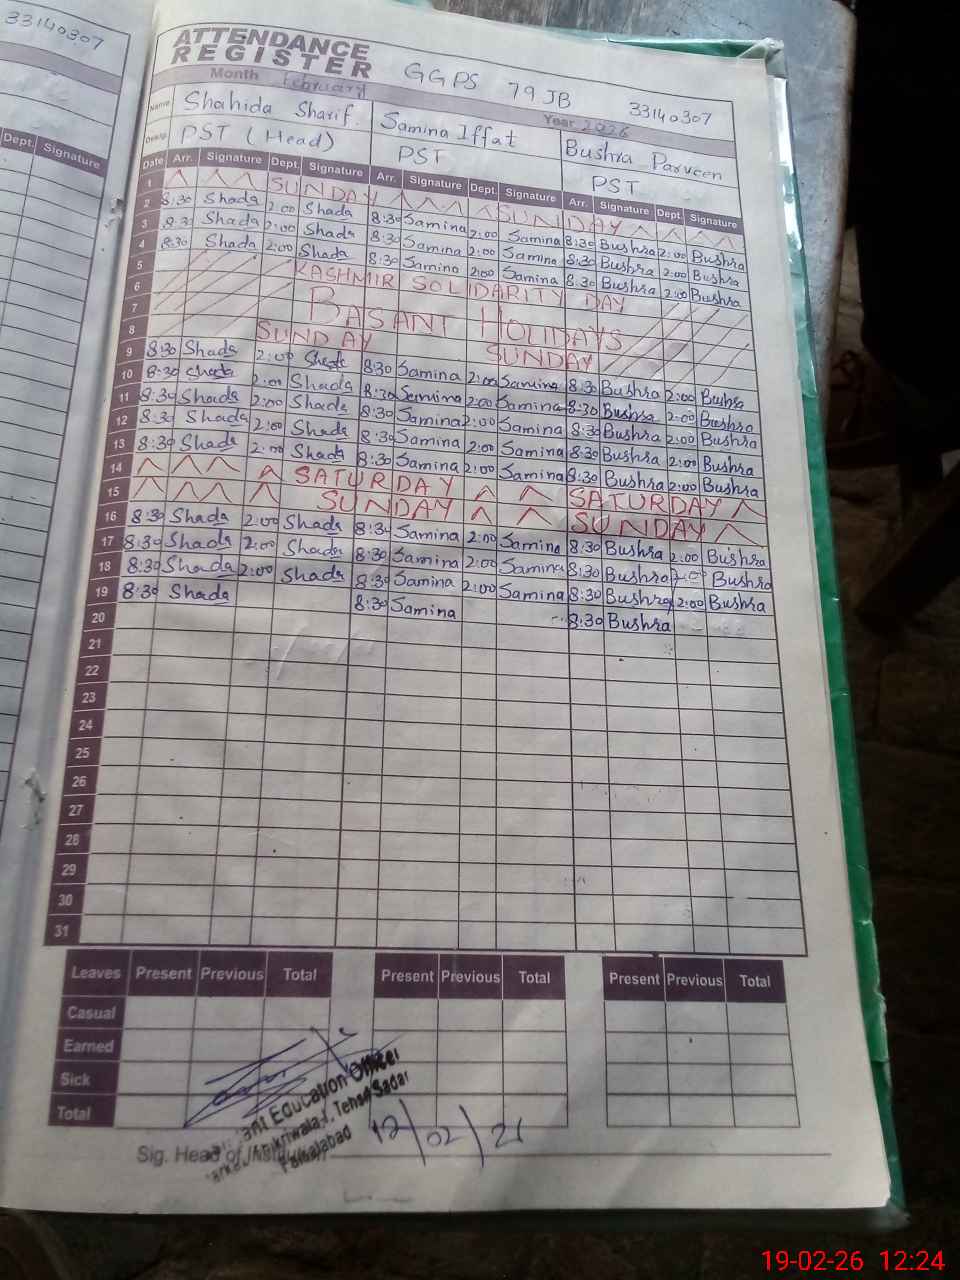 33140307
Dept. Signature
ATTENDANCE
REGISTER
GGPS 79 JB 33140307
Month February Year 2026
Name Shahida Sharif. Samina Iffat Bushra Parveen
Desig. PST (Head) PST PST
Date Arr. Signature Dept. Signature Arr. Signature Dept. Signature Arr. Signature Dept. Signature
1 SUNDAY SUNDAY
2 8:30 Shada 2:00 Shada 8:30 Samina 2:00 Samina 8:30 Bushra 2:00 Bushra
3 8:30 Shada 2:00 Shada 8:30 Samina 2:00 Samina 8:30 Bushra 2:00 Bushra
4 8:30 Shada 2:00 Shada 8:30 Samina 2:00 Samina 8:30 Bushra 2:00 Bushra
5 KASHMIR SOLIDARITY DAY
6
7 BASANT HOLIDAYS
8 SUNDAY SUNDAY
9 8:30 Shada 2:00 Shada 8:30 Samina 2:00 Samina 8:30 Bushra 2:00 Bushra
10 8:30 Shada 2:00 Shada 8:30 Samina 2:00 Samina 8:30 Bushra 2:00 Bushra
11 8:30 Shada 2:00 Shada 8:30 Samina 2:00 Samina 8:30 Bushra 2:00 Bushra
12 8:30 Shada 2:00 Shada 8:30 Samina 2:00 Samina 8:30 Bushra 2:00 Bushra
13 8:30 Shada 2:00 Shada 8:30 Samina 2:00 Samina 8:30 Bushra 2:00 Bushra
14 SATURDAY SATURDAY
15 SUNDAY SUNDAY
16 8:30 Shada 2:00 Shada 8:30 Samina 2:00 Samina 8:30 Bushra 2:00 Bushra
17 8:30 Shada 2:00 Shada 8:30 Samina 2:00 Samina 8:30 Bushra 2:00 Bushra
18 8:30 Shada 2:00 Shada 8:30 Samina 2:00 Samina 8:30 Bushra 2:00 Bushra
19 8:30 Shada 8:30 Samina 8:30 Bushra
20
21
22
23
24
25
26
27
28
29
30
31
Leaves Present Previous Total Present Previous Total Present Previous Total
Casual
Earned
Sick
Total
Education Officer
Tehsil Sadar
Faisalabad
12/02/26
Sig. Head of
19-02-26 12:24